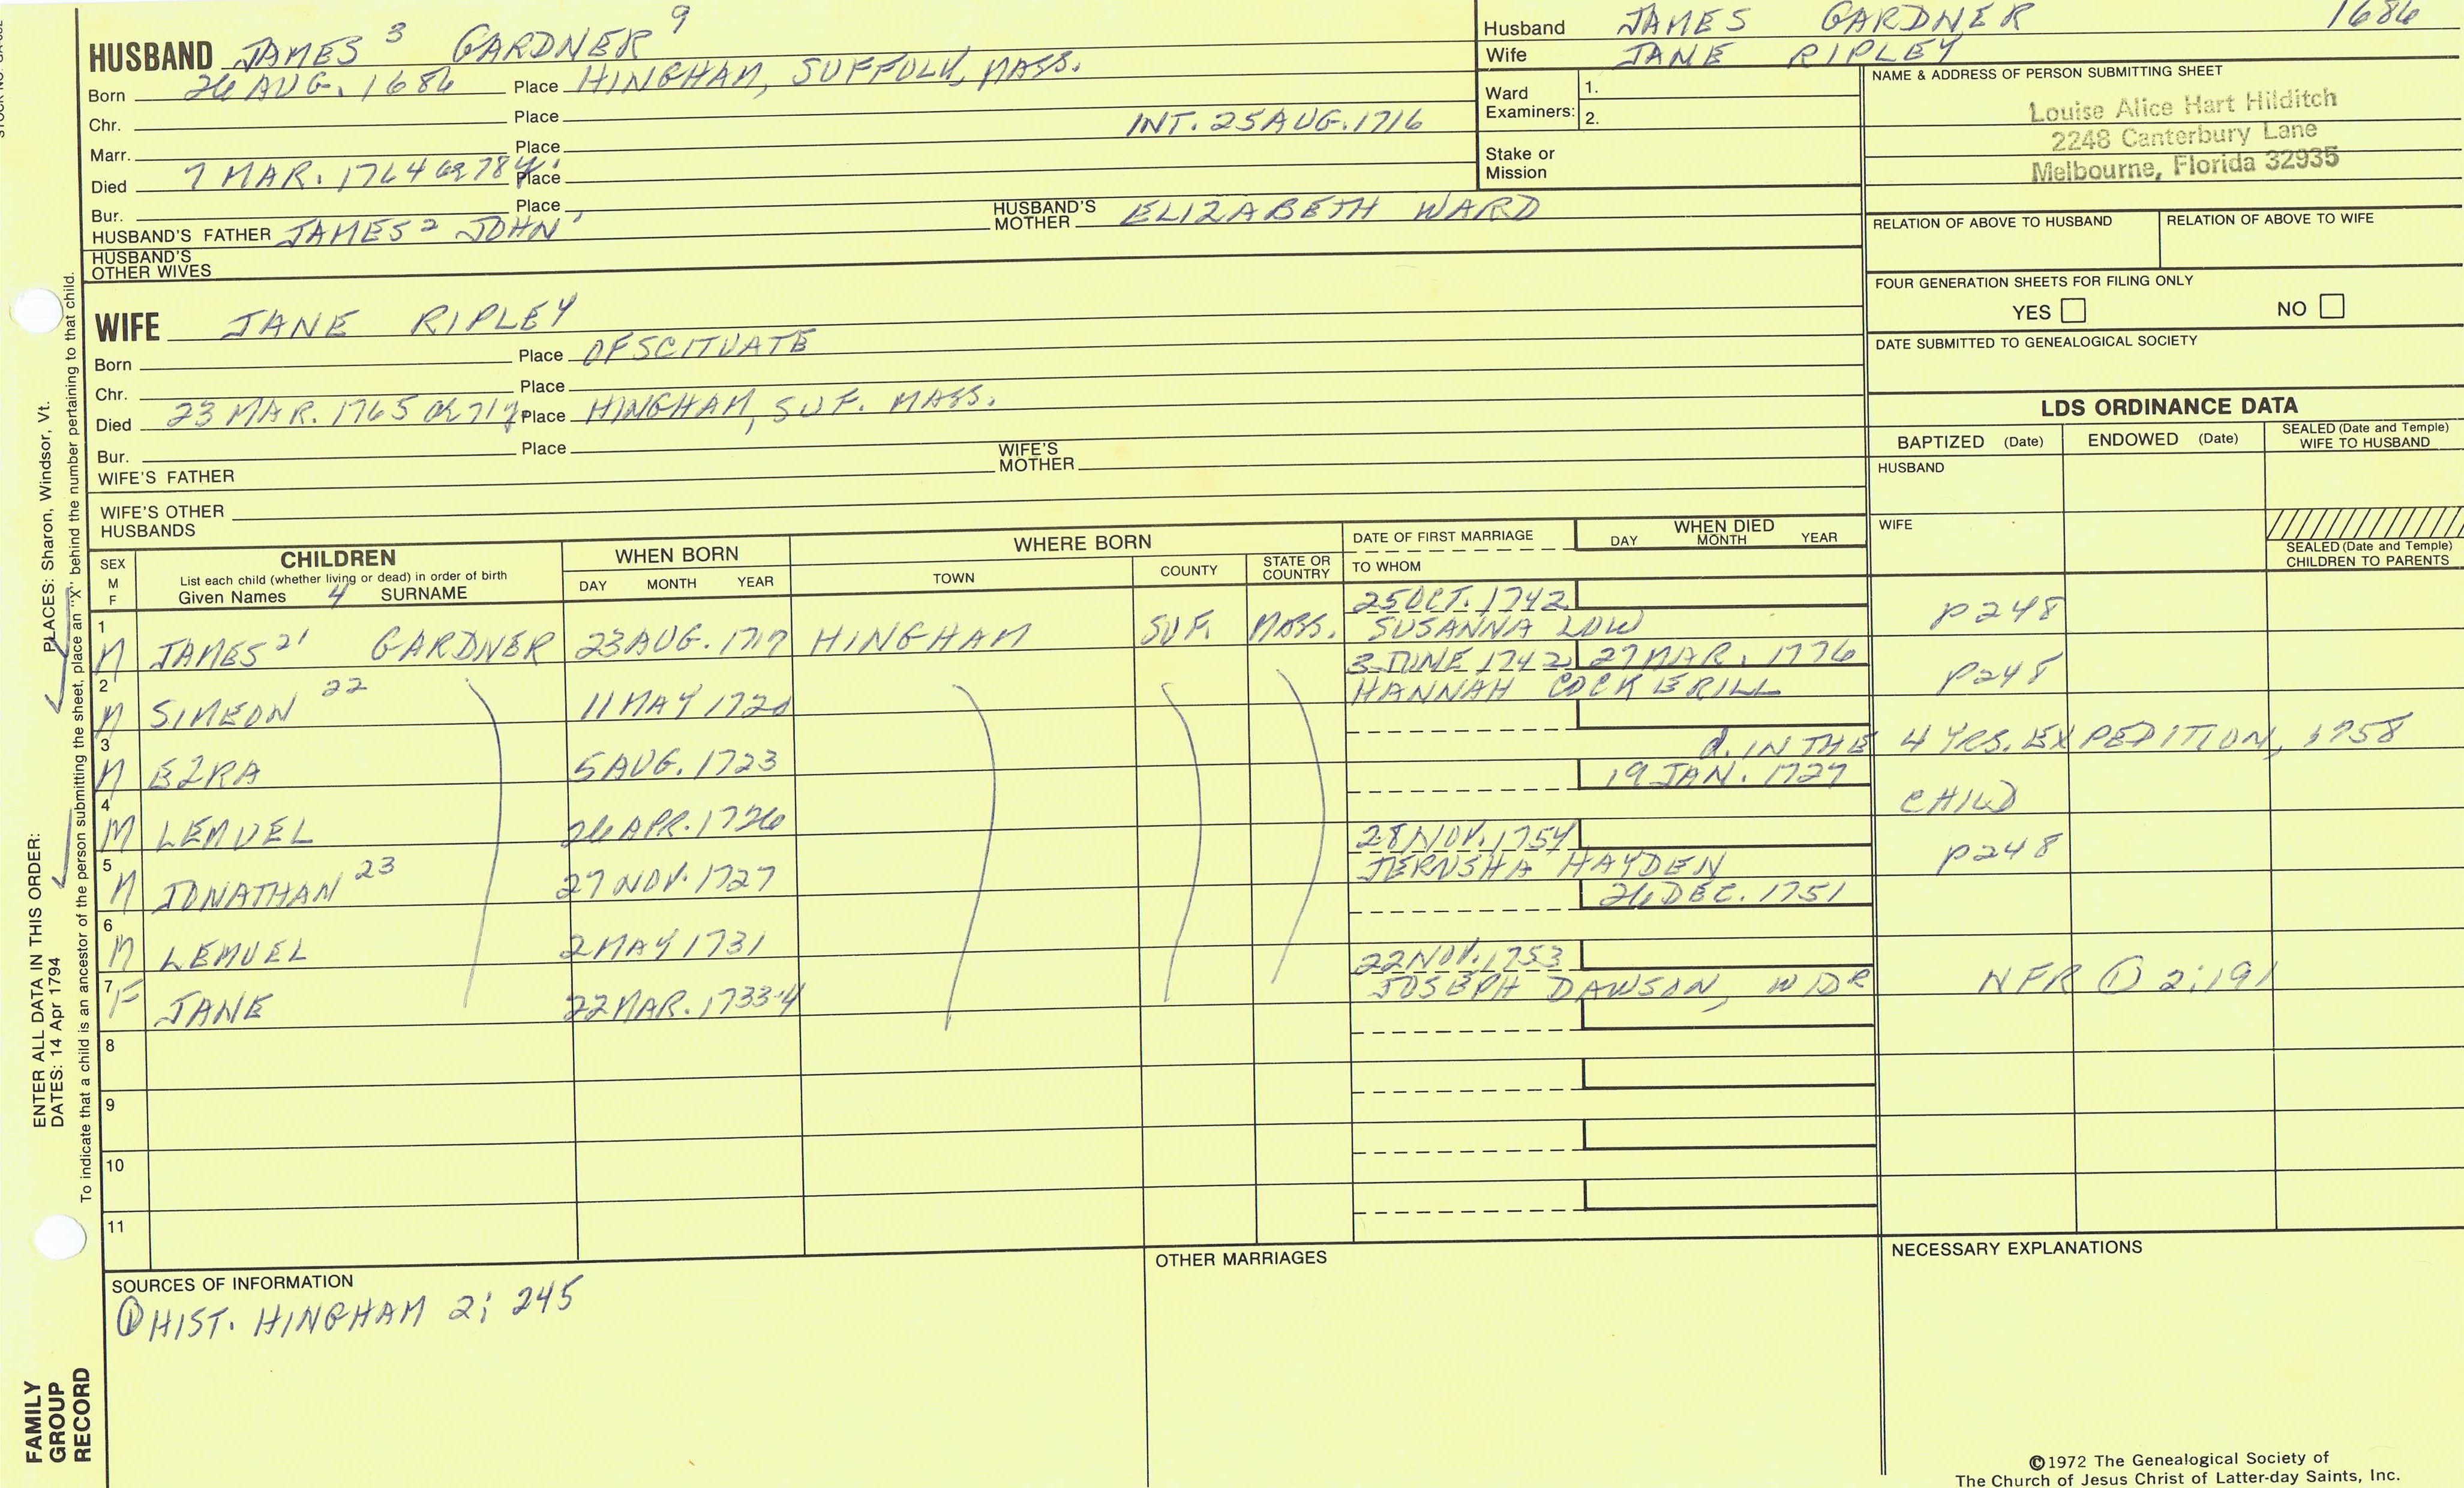 HUSBAND JAMES 3 GARDNER 9
Born 26 AUG. 1686 Place HINGHAM, SUFFOLK, MASS.
Chr. Place
INT. 25 AUG. 1716
Marr. Place
Died 7 MAR. 1764 ae 78 y. Place
Bur. Place
HUSBAND'S FATHER JAMES 2 JOHN 1 HUSBAND'S MOTHER ELIZABETH WARD
HUSBAND'S OTHER WIVES
WIFE JANE RIPLEY
Born Place OF SCITUATE
Chr. Place
Died 23 MAR. 1765 ae 71 y Place HINGHAM, SUF. MASS.
Bur. Place
WIFE'S FATHER WIFE'S MOTHER
WIFE'S OTHER HUSBANDS
Husband JAMES GARDNER 1686
Wife JANE RIPLEY
Ward Examiners: 1.
2.
Stake or Mission
NAME & ADDRESS OF PERSON SUBMITTING SHEET
Louise Alice Hart Hilditch
2248 Canterbury Lane
Melbourne, Florida 32935
RELATION OF ABOVE TO HUSBAND RELATION OF ABOVE TO WIFE
FOUR GENERATION SHEETS FOR FILING ONLY
YES NO
DATE SUBMITTED TO GENEALOGICAL SOCIETY
LDS ORDINANCE DATA
BAPTIZED (Date) ENDOWED (Date) SEALED (Date and Temple) WIFE TO HUSBAND
HUSBAND
WIFE
SEALED (Date and Temple) CHILDREN TO PARENTS
SEX M F CHILDREN WHEN BORN WHERE BORN DATE OF FIRST MARRIAGE WHEN DIED
List each child (whether living or dead) in order of birth
Given Names 4 SURNAME DAY MONTH YEAR TOWN COUNTY STATE OR COUNTRY TO WHOM DAY MONTH YEAR
1 M JAMES 21 GARDNER 23 AUG. 1717 HINGHAM SUF. MASS. 25 OCT. 1742 SUSANNA LOW P248
2 M SIMEON 22 11 MAY 1720 3 JUNE 1742 27 MAR. 1776 HANNAH COCKERILL P248
3 M EZRA 5 AUG. 1723 d. IN THE 4 YRS. EXPEDITION, 1758
4 M LEMUEL 26 APR. 1726 19 JAN. 1727 CHILD
5 M JONATHAN 23 27 NOV. 1727 28 NOV. 1754 JERUSHA HAYDEN P248
6 M LEMUEL 2 MAY 1731 26 DEC. 1751
7 F JANE 22 MAR. 1733-4 22 NOV. 1753 JOSEPH DAWSON, WIDR NFR ① 2:191
8
9
10
11
SOURCES OF INFORMATION
① HIST. HINGHAM 2; 245
OTHER MARRIAGES
NECESSARY EXPLANATIONS
©1972 The Genealogical Society of
The Church of Jesus Christ of Latter-day Saints, Inc.
ENTER ALL DATA IN THIS ORDER:
DATES: 14 Apr 1794 PLACES: Sharon, Windsor, Vt.
To indicate that a child is an ancestor of the person submitting the sheet, place an "X" behind the number pertaining to that child.
FAMILY
GROUP
RECORD